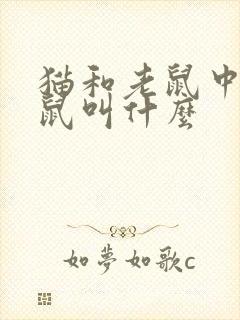 猫和老鼠中
鼠叫什麼
如夢如歌c